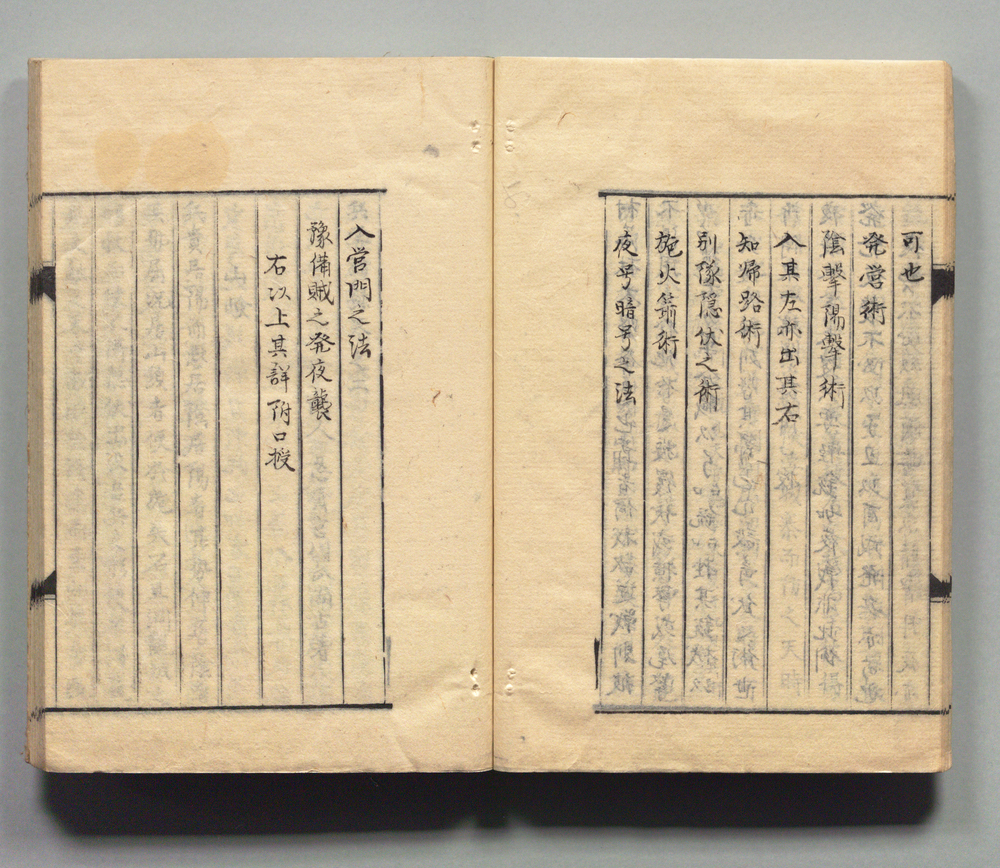 可也
発営術
陰撃陽撃術
入其左亦出其右
知帰路術
別隊隠伏之術
施火箭術
夜号暗号之法
入営門之法
豫備賊之発夜襲
右以上其詳附口授